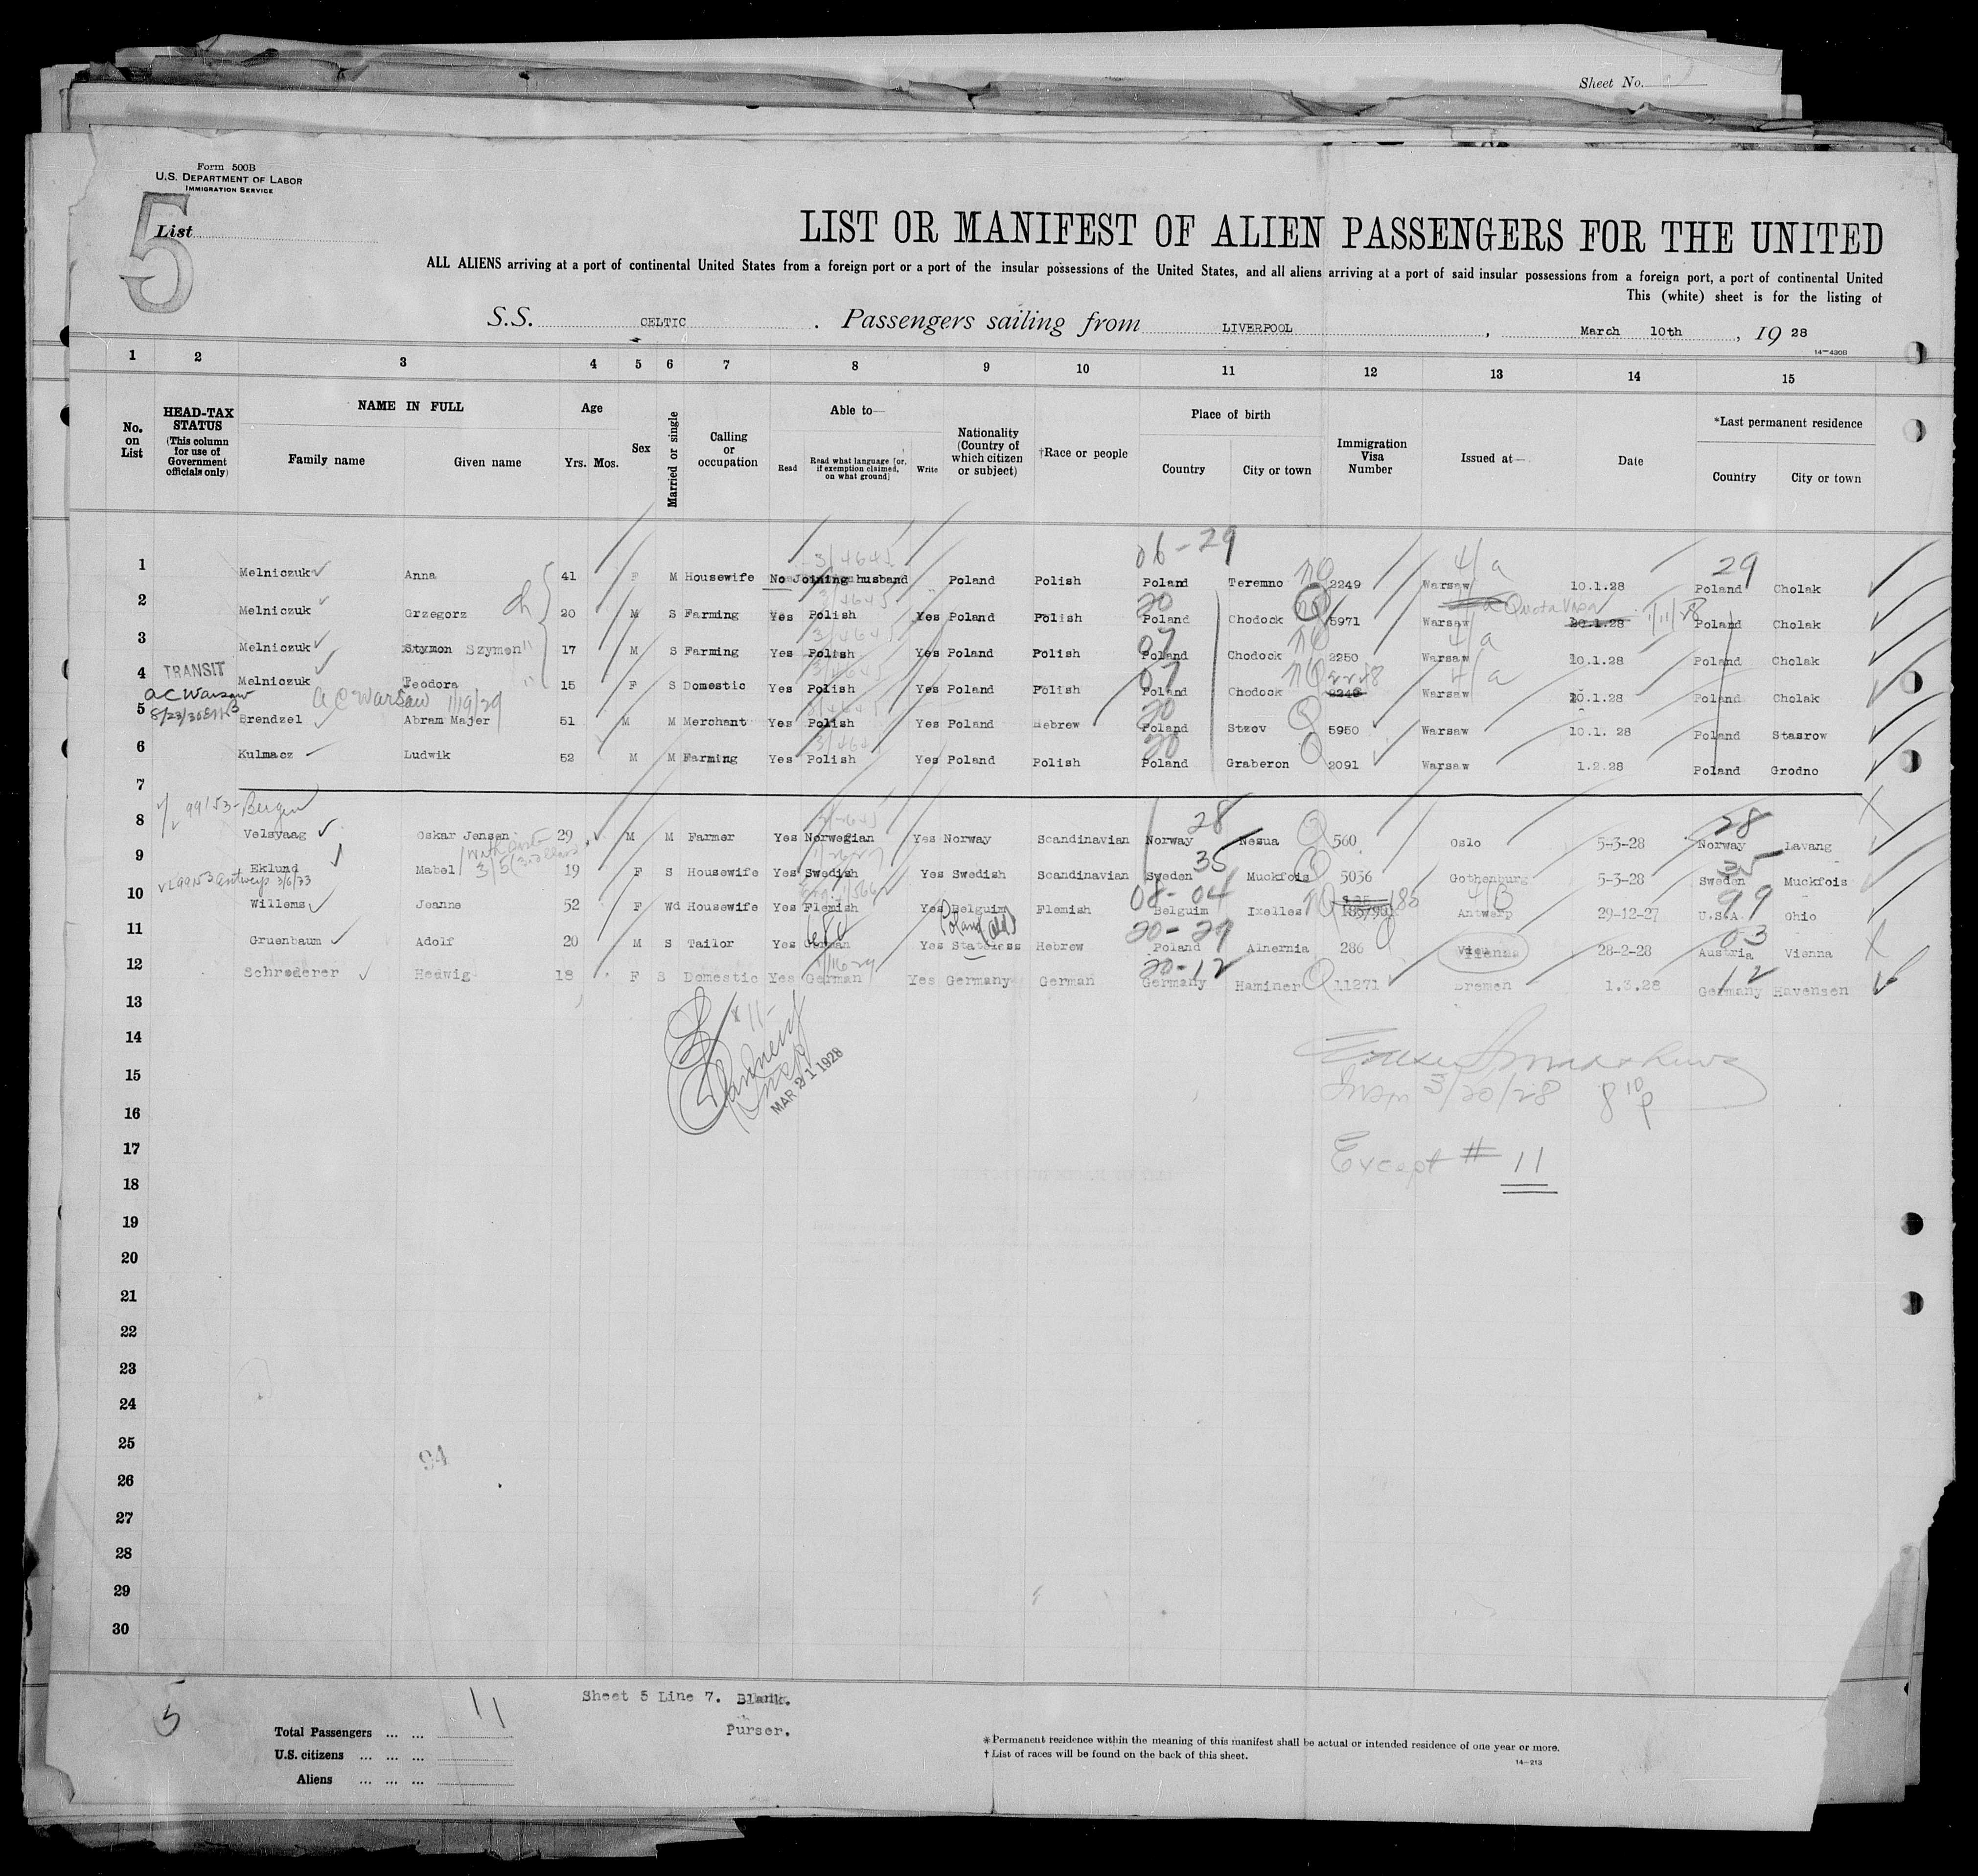 Sheet No.
Form 500B
U.S. DEPARTMENT OF LABOR
IMMIGRATION SERVICE
5
List
LIST OR MANIFEST OF ALIEN PASSENGERS FOR THE UNITED
ALL ALIENS arriving at a port of continental United States from a foreign port or a port of the insular possessions of the United States, and all aliens arriving at a port of said insular possessions from a foreign port, a port of continental United
This (white) sheet is for the listing of
S.S. CELTIC . Passengers sailing from LIVERPOOL , March 10th , 19 28
14—430B
1 2 3 4 5 6 7 8 9 10 11 12 13 14 15
No. on List
HEAD-TAX STATUS (This column for use of Government officials only)
NAME IN FULL
Family name Given name
Age
Yrs. Mos.
Sex
Married or single
Calling or occupation
Able to—
Read Read what language [or, if exemption claimed, on what ground] Write
Nationality (Country of which citizen or subject)
†Race or people
Place of birth
Country City or town
Immigration Visa Number
Issued at—
Date
*Last permanent residence
Country City or town
06-29
3/4645 4/a 29
1 Melniczuk Anna 41 F M Housewife No Joining husband Poland Polish Poland Teremno NQ 2249 Warsaw 10.1.28 Poland Cholak
3/4645 20 Quota Visa 1/11/28
2 Melniczuk Grzegorz ch 20 M S Farming Yes Polish Yes Poland Polish Poland Chodock Q 5971 Warsaw 20.1.28 Poland Cholak
3/4645 07 4/a
3 Melniczuk Stymon Szymen 17 M S Farming Yes Polish Yes Poland Polish Poland Chodock NQ 2250 Warsaw 10.1.28 Poland Cholak
TRANSIT 3/4645 07 2248 4/a
4 Melniczuk Teodora 15 F S Domestic Yes Polish Yes Poland Polish Poland Chodock NQ Warsaw 10.1.28 Poland Cholak
AC Warsaw AC Warsaw 1/19/29
8/23/30
3/4645 20
5 Brendzel Abram Majer 51 M M Merchant Yes Polish Yes Poland Hebrew Poland Stzov Q 5950 Warsaw 10.1. 28 Poland Stasrow
3/4645 20
6 Kulmacz Ludwik 52 M M Farming Yes Polish Yes Poland Polish Poland Graberon Q 2091 Warsaw 1.2.28 Poland Grodno
7
99153- Bergen
28 28
8 Velsvaag Oskar Jensen 29 M M Farmer Yes Norwegian Yes Norway Scandinavian Norway Nesua Q 560 Oslo 5-3-28 Norway Lavang
35 35
9 Eklund Mabel 19 F S Housewife Yes Swedish Yes Swedish Scandinavian Sweden Muckfois Q 5036 Gothenburg 5-3-28 Sweden Muckfois
99153 Antwerp 3/6/33
08-04 185 4/B 99
10 Willems Jeanne 52 F Wd Housewife Yes Flemish Yes Belguim Flemish Belguim Ixelles NQ Antwerp 29-12-27 U.S.A. Ohio
Poland 20-29 03
11 Gruenbaum Adolf 20 M S Tailor Yes German Yes Stateless Hebrew Poland Alnernia 286 Vienna 28-2-28 Austria Vienna
20-12 12
12 Schrederer Hedwig 18 F S Domestic Yes German Yes Germany German Germany Haminer Q 11271 Bremen 1.3.28 Germany Havensen
13
14
15
16
17
18
19
20
21
22
23
24
25
26
27
28
29
30
# 11-
Insp
MAR 21 1928
Insp 3/20/28 8 10 P
Except # 11
94
5
Sheet 5 Line 7. Blank.
Purser.
Total Passengers ... ... 11
U.S. citizens ... ... ...
Aliens ... ... ...
* Permanent residence within the meaning of this manifest shall be actual or intended residence of one year or more.
† List of races will be found on the back of this sheet.
14—213